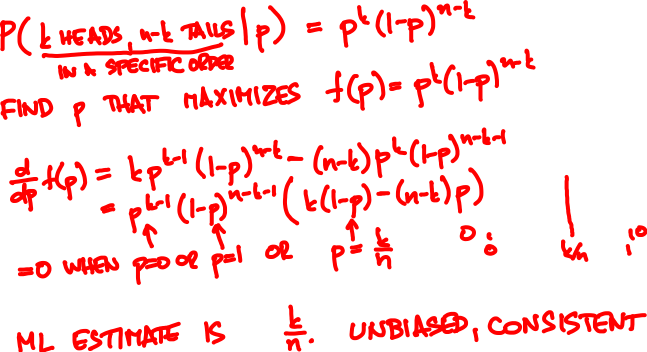 P(k HEADS, n-k TAILS | p) = p^k (1-p)^{n-k}
IN A SPECIFIC ORDER
FIND p THAT MAXIMIZES f(p) = p^k (1-p)^{n-k}
d/dp f(p) = k p^{k-1} (1-p)^{n-k} - (n-k) p^k (1-p)^{n-k-1}
= p^{k-1} (1-p)^{n-k-1} ( k(1-p) - (n-k) p )
=0 WHEN p=0 OR p=1 OR p = k/n
0, 0 k/n 1, 0
ML ESTIMATE IS k/n. UNBIASED, CONSISTENT